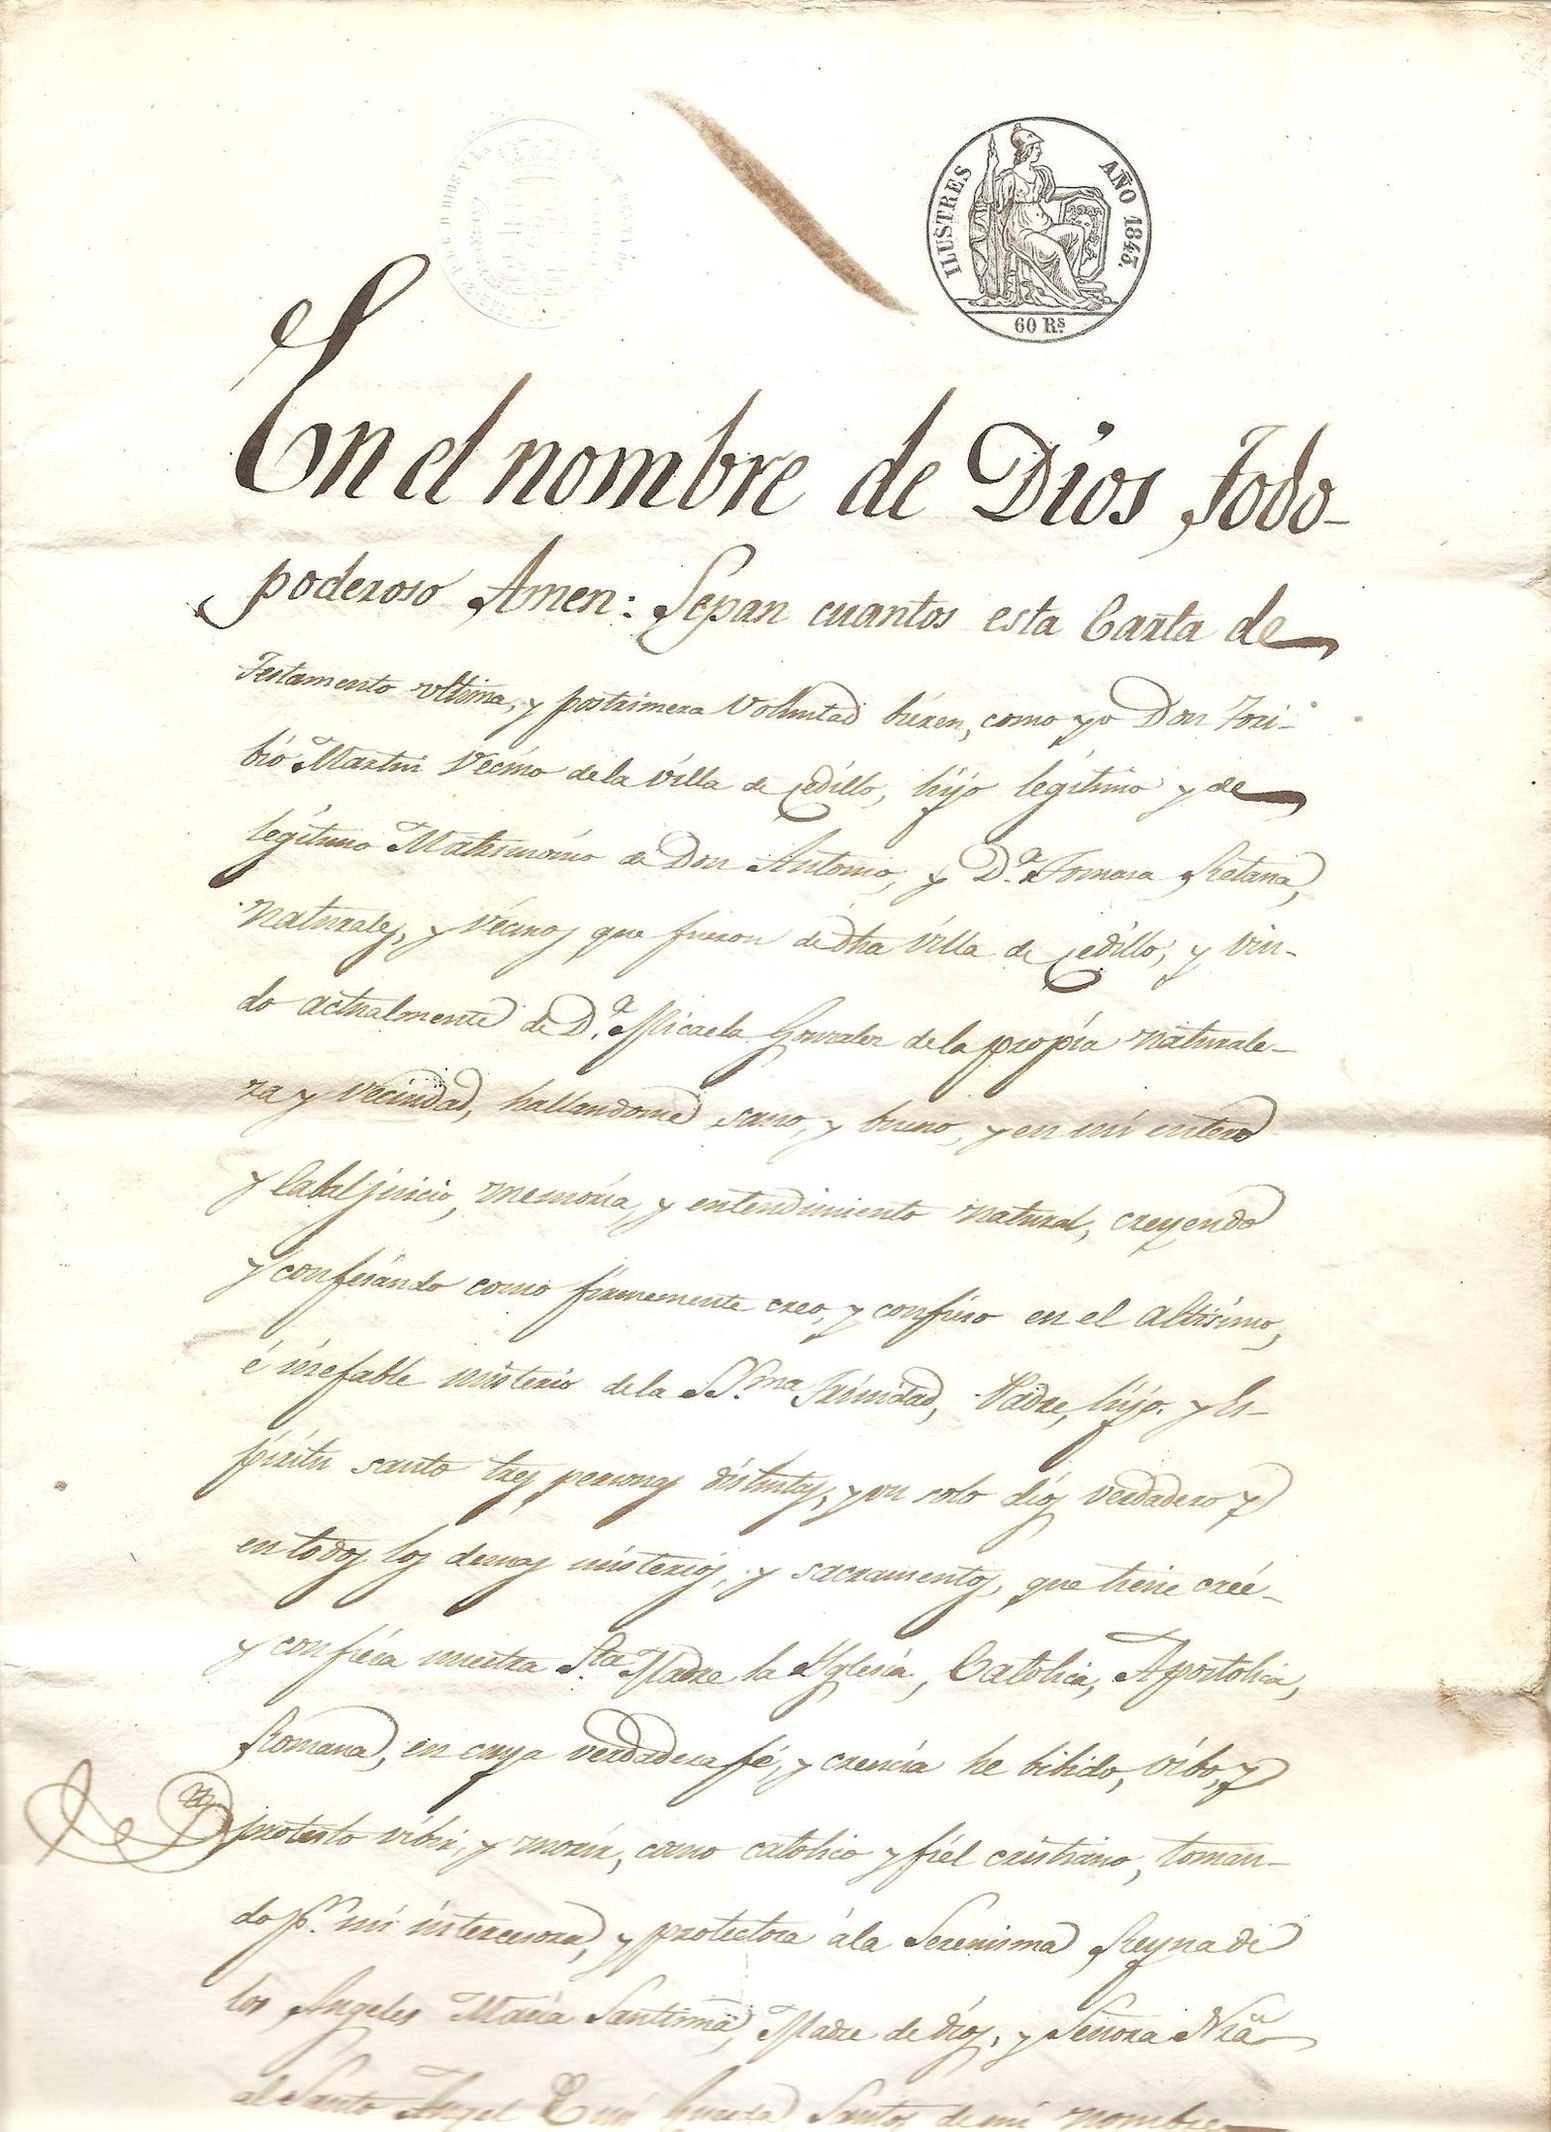 ILUSTRES AÑO 1845.
60 Rs
En el nombre de Dios Todo-
poderoso Amen: Sepan cuantos esta Carta de
Testamento ultima, y postrimera Voluntad bieren, como yo Don Tori-
bio Martin Vecino de la Villa de Cedillo, hijo legitimo y de
legitimo Matrimonio de Don Antonio, y D.ª Tomasa Retana,
Naturales, y Vecinos que fueron de dha Villa de Cedillo, y Viu-
do actualmente de D.ª Micaela Gonzalez de la propia naturale-
za y Vecindad, hallandome sano, y bueno, y en mi entero
y Cabal juicio, memoria, y entendimiento natural, creyendo
y confesando como firmemente creo, y confieso en el altisimo,
é inefable misterio de la SS.ma Trinidad, Padre, hijo, y Es-
piritu santo tres personas distintas, y un solo dios verdadero y
en todos los demas misterios, y sacramentos, que tiene creé-
y confiesa nuestra Sta. Madre la Yglesia, Catolica, Apostolica,
Romana, en cuya verdadera fé, y crencia he bibido, vibo, y
protesto vibir, y morir, como catolico y fiel cristiano, toman-
do p.r mi intercesora, y protectora á la Serenisima Reyna de
los Angeles Maria Santisma, Madre de dios, y Señora Nrã
al Santo Angel de mi Guarda, Santos de mi nombre